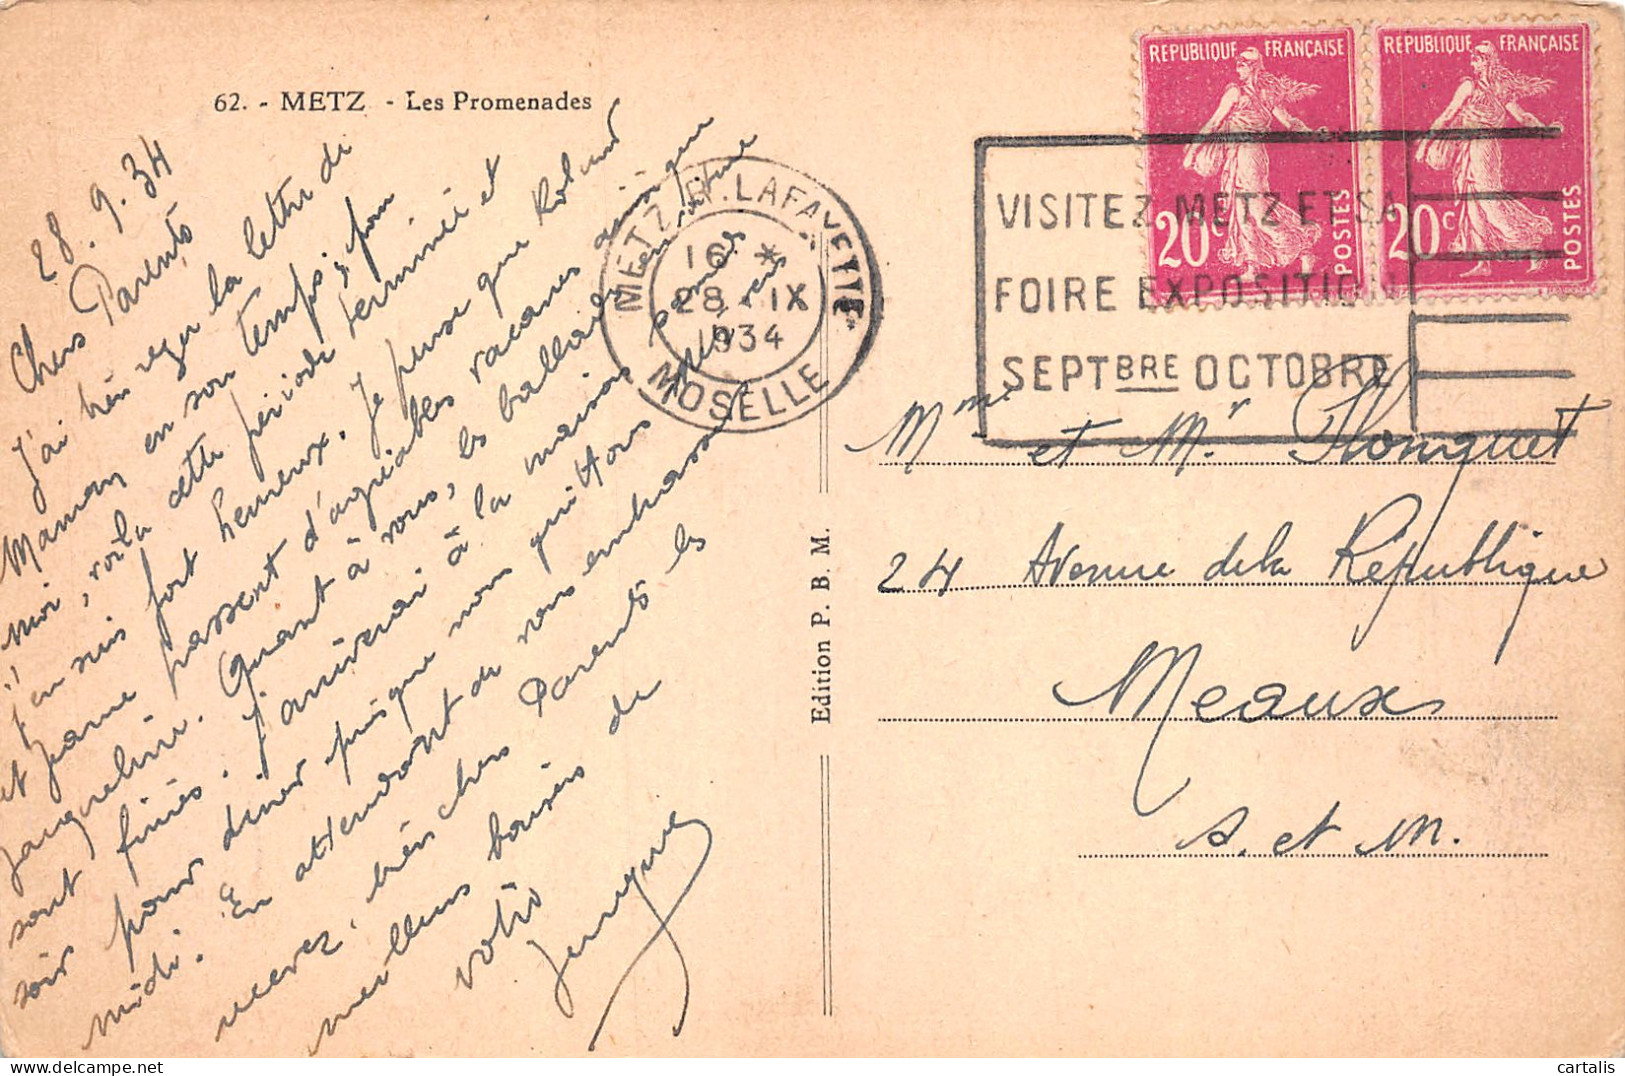 62. - METZ - Les Promenades
28.9.34
Chers Parents
J'ai bien reçu la lettre de
Maman en son temps; pour
moi, voilà cette période terminée et
j'en suis fort heureux. Je pense que Roland
et Jeanne passent d'agréables vacances ainsi que
Jacqueline. Quant à nous, les ballades en voiture
sont finies. J'arriverai à la maison samedi
soir pour diner puisque nous quittons
midi. En attendant de vous embrasser
recevez, bien chers Parents les
meilleurs baisers de
votre
Jacques
METZ R.P. LAFAYETTE
16 *
28 - IX
1934
MOSELLE
VISITEZ METZ ET SA
FOIRE EXPOSITION
SEPTBRE OCTOBRE
REPUBLIQUE FRANÇAISE
20c
POSTES
REPUBLIQUE FRANÇAISE
20c
POSTES
Mme et Mr. Plonquet
24 Avenue de la République
Meaux
S. et M.
Edition P. B. M.
delcampe.net
cartalis